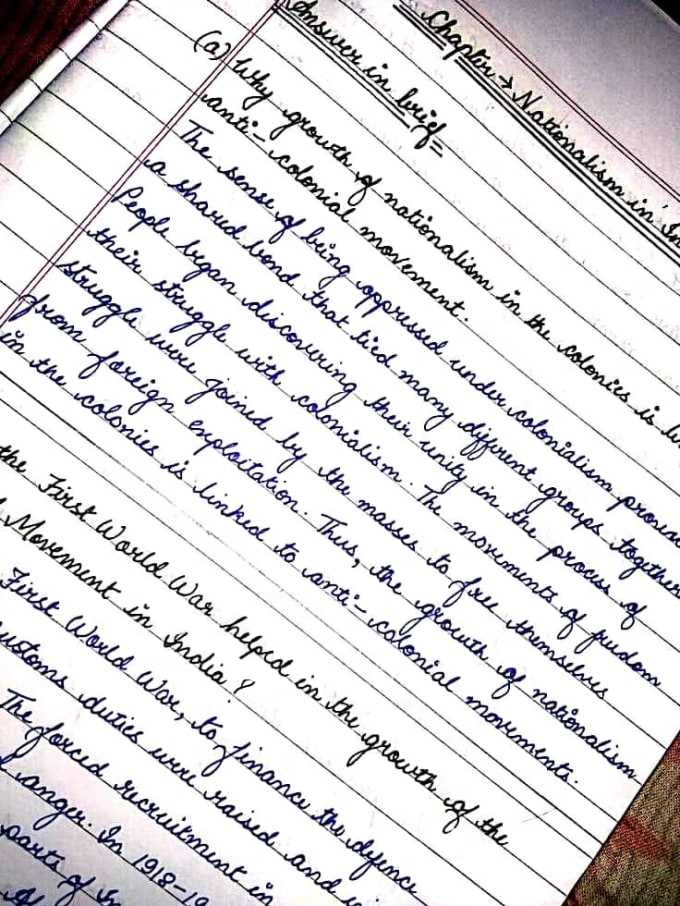 Chapter → Nationalism in In
Answer in brief =
(a) Why growth of nationalism in the colonies is lin
anti-colonial movement.
The sense of being oppressed under colonialism provi
a shared bond that tied many different groups together
People began discovering their unity in the process of
their struggle with colonialism. The movements of freedom
struggle were joined by the masses to free themselves
from foreign exploitation. Thus, the growth of nationalism
in the colonies is linked to anti-colonial movements.
the First World War helped in the growth of the
Movement in India?
First World War, to finance the defence
customs duties were raised and
The forced recruitment in
anger. In 1918-19
parts of In